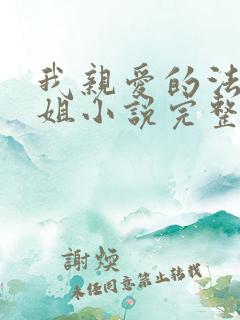 我親愛的法
姐小說完整
謝煐
未经同意禁止转载